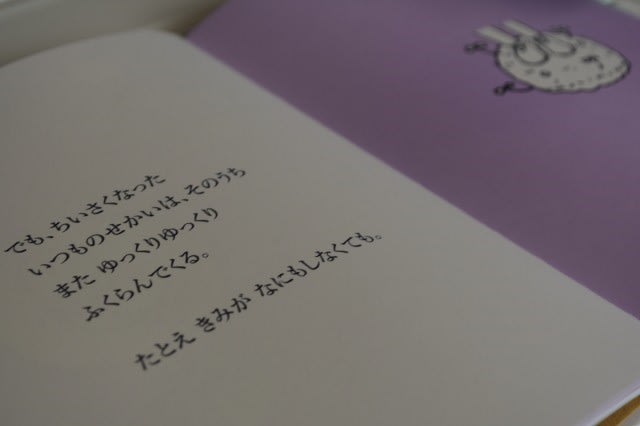 でも、ちいさくなった
いつものせかいは、そのうち
また ゆっくりゆっくり
ふくらんでくる。
たとえ きみが なにもしなくても。